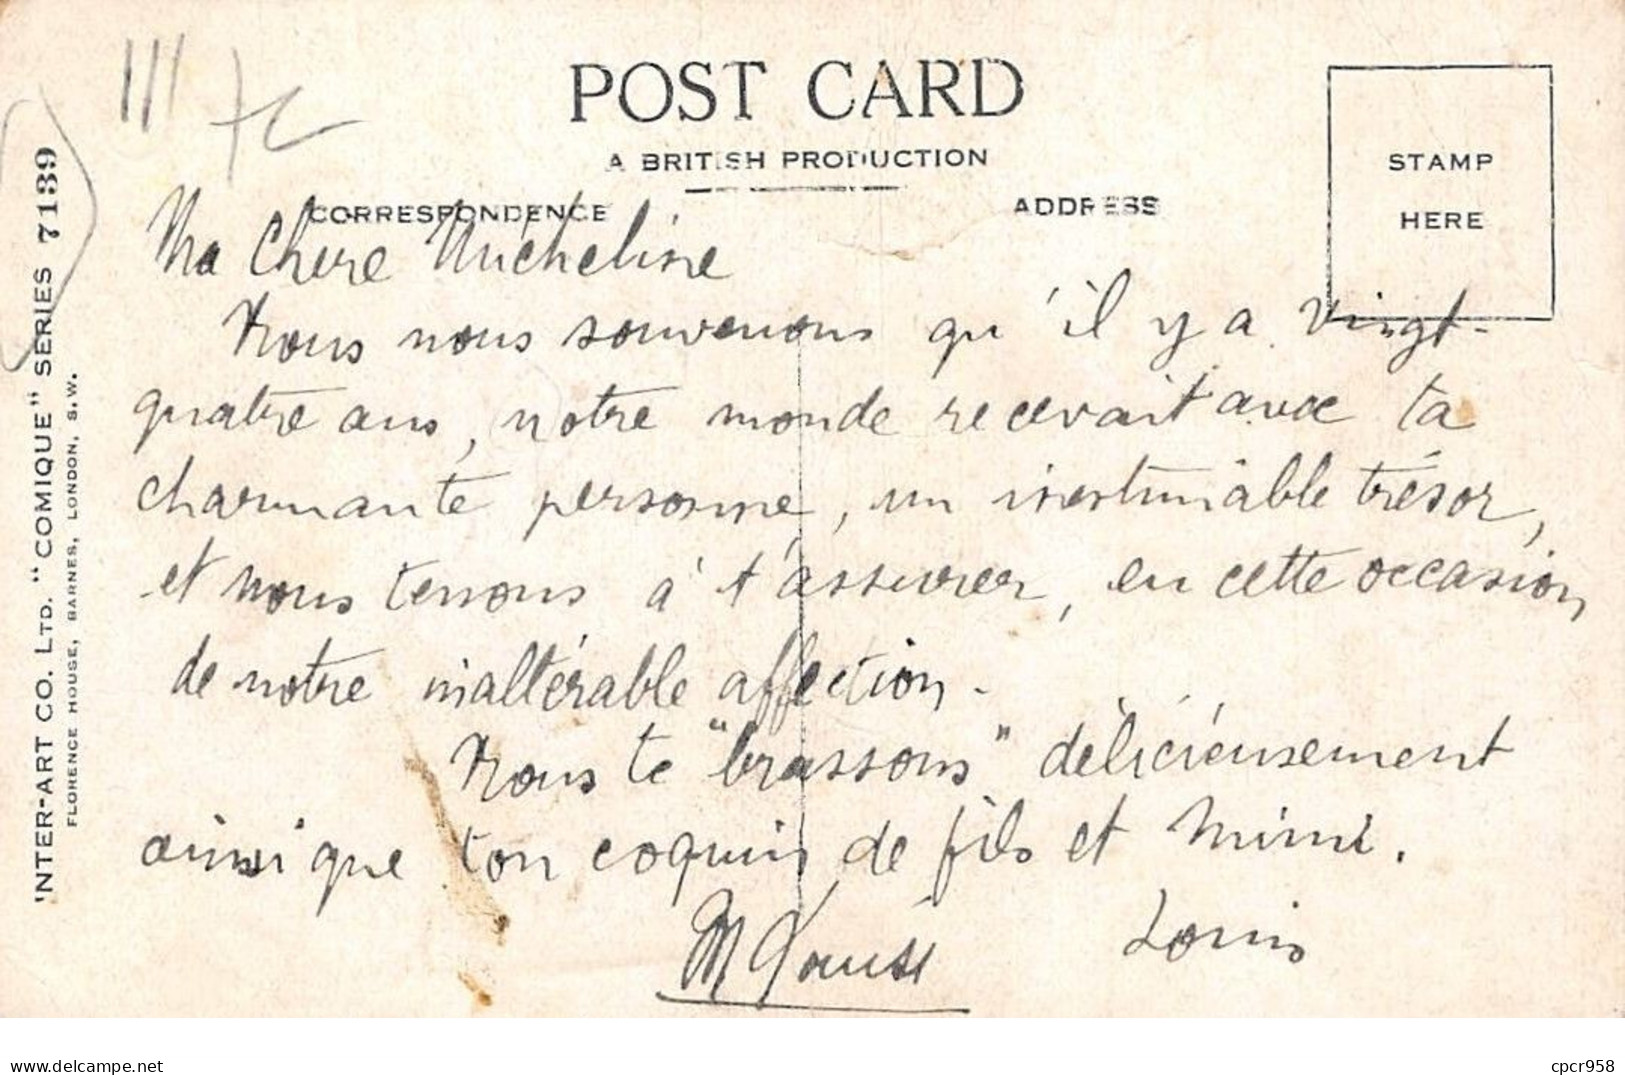 III
POST CARD
A BRITISH PRODUCTION
CORRESPONDENCE
ADDRESS
STAMP
HERE
'NTER-ART CO. LTD. "COMIQUE" SERIES 7189
FLORENCE HOUSE, BARNES, LONDON, S.W.
Ma Chere Micheline
Nous nous souvenons qu'il y a vingt-
quatre ans, notre monde recevait avec ta
charmante personne, un inestimable trésor,
et nous tenons à t'assurer, en cette occasion,
de notre inaltérable affection -
Nous te "brassons" délicieusement
ainsi que ton coquin de fils et Mimi.
Louis
delcampe.net
cpcr958